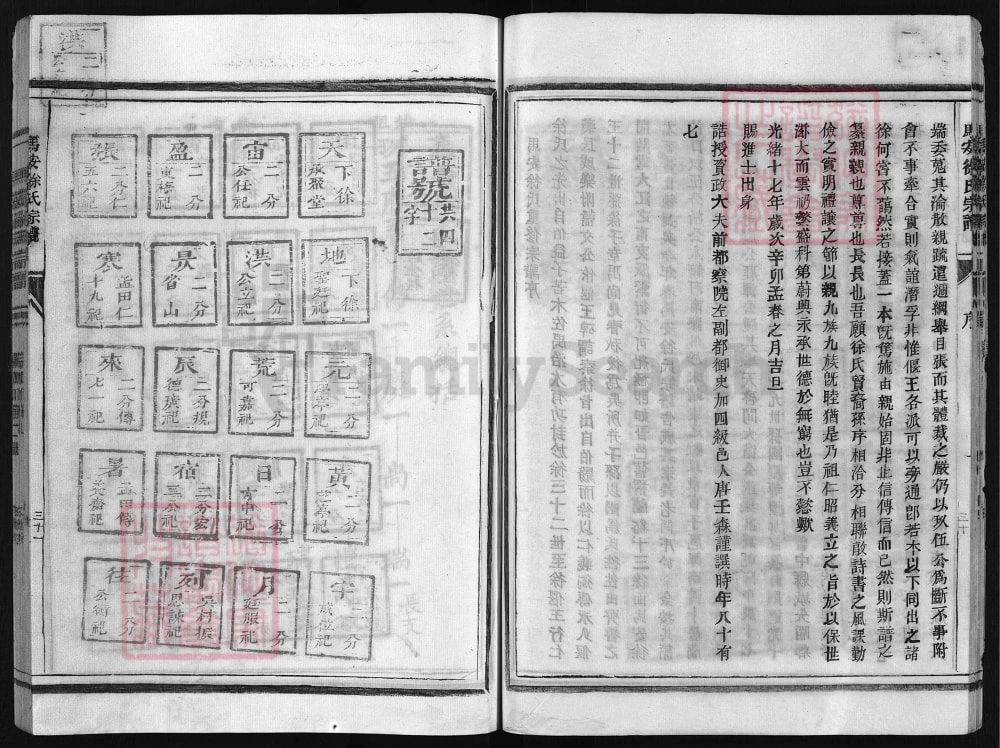 馬安徐氏宗譜
序
三十
端委蒐其淪散親疏遠邇綱舉目張而其體裁之嚴仍以玫伍公爲斷不事附
會不事牽合實則叙誼潛孚非惟偃王各派可以旁通卽若木以下同出之諸
徐何嘗不藹然若接蓋一本旣篤施由親始固非止信傳信而已然則斯譜之
纂親親也尊尊也長長也吾願徐氏賢裔孫序相洽分相聯敵詩書之風課勤
儉之實明禮讓之節以親九族九族旣睦猶是乃祖仁昭義立之旨於以保世
滋大而雲礽繁盛科第蔚興永承世德於無窮也豈不懿歟
光緒十七年歲次辛卯孟春之月吉旦
賜進士出身
誥授資政大夫前都察院左副都御史加四級邑人唐壬森謹譔時年八十有
七
譜號共四十二字
天 下徐 成聚堂
地 下徐 聖廷祀
元 二分
黃 二分
宇 二分 成位祀
宙 二分 公任祀
洪 二分 公立祀
荒 二分 可嘉祀
日 二分 方中祀
月 二分 廷服祀
盈 二分 寬穆祀
昃 二分 省山
辰 二分規 德廣祀
宿 二分宏 三公祀
列 吳村振 思諫祀
張 二分仁 五六祀
寒 孟田仁 十九祀
來 二分傳 七一祀
暑 孟田傳 奕齋祀
往 二分 公術祀
馬安徐氏宗譜
三十一
洪 二分 公立祀